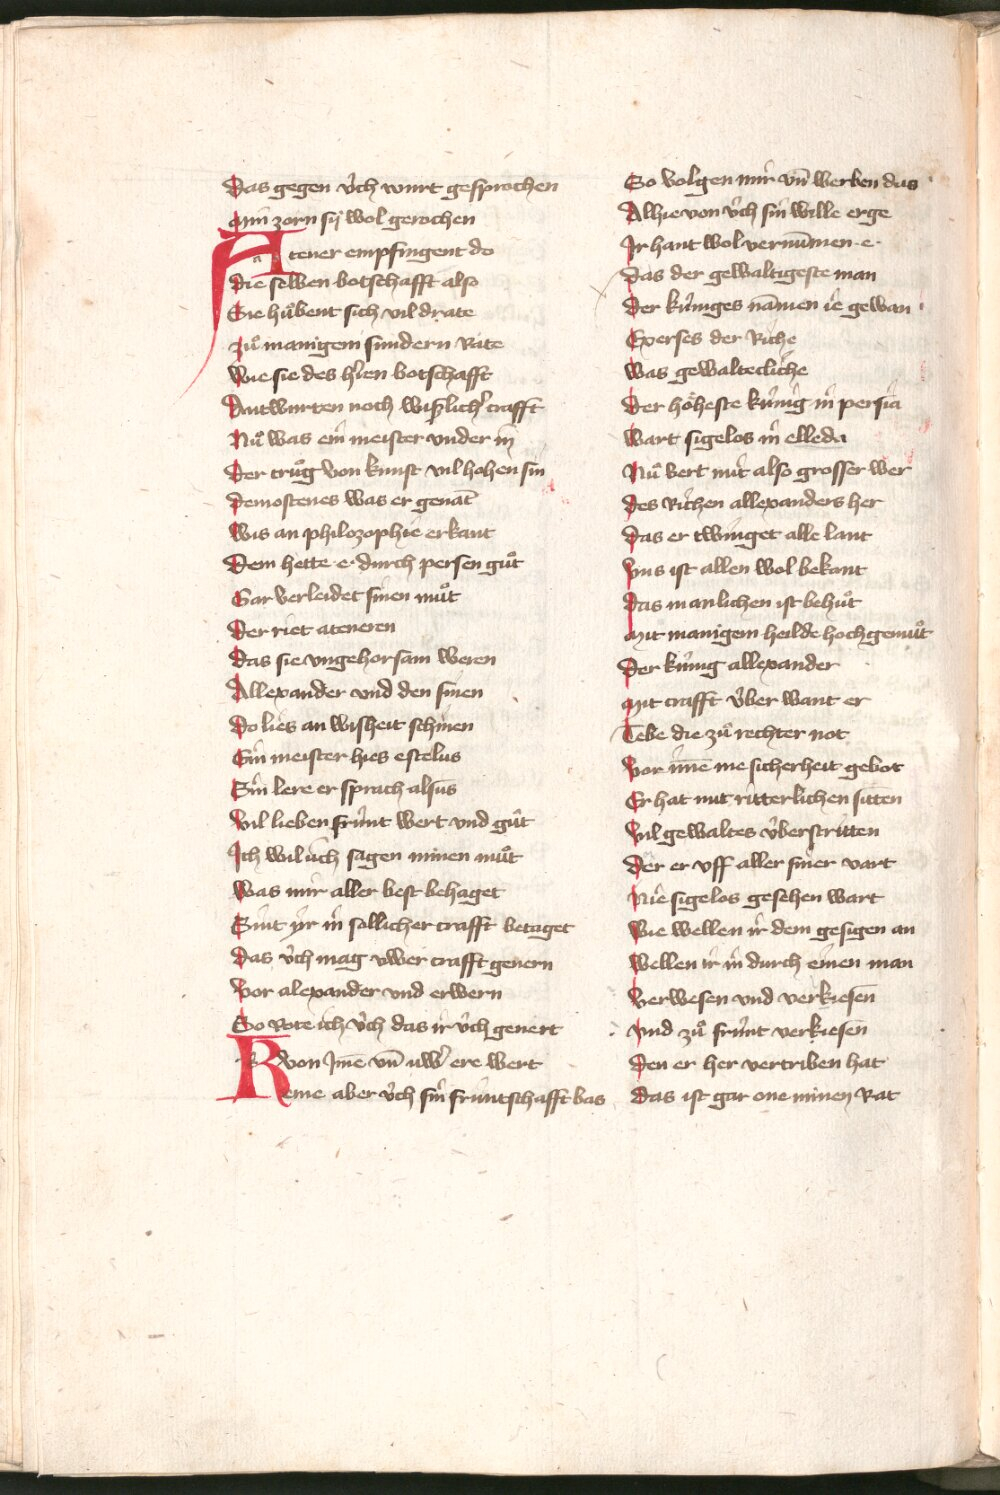 Das gegen v́ch wurt gesprochen
Min zorn sÿ wol gerochen
Atener empfingent do
Die selben botschafft also
Sie hůbent sich vil drate
Zů manigem sundern Rate
Wie sie des h'ren botschafft
Antwurten noch wißlich' crafft
Nů was ein meister vnder in
Der trůg von kunst vil hohen sin
Demostenes was er genāt
Wis an philozophie erkant
Dem hette ·e· durch persen gůt
Gar verleidet sinen můt
Der riet ateneren
Das sie vngehorsam weren
Allexander vnd den sinen
Do lies an wisheit schinen
Ein meister hies estelus
Sin lere er sprach alsus
Vil lieben frúnt wert vnd gůt
Ich wil úch sagen minen můt
Was mir aller best behaget
Sint ir in sollicher crafft betaget
Das v́ch mag vwer crafft genern
Vor alexander vnd erwern
So Rote ich v́ch das ir v́ch genert
Von Jme vn̄ uw' ere wert
Keme aber v́ch sin fruntschafft bas
So volgen mir vn̄ werben das
Alhie von v́ch sin wille erge
Jr hant wol vernūmen ·e·
Das der gewaltigeste man
Der kúniges nāmen ie gewan
Exerses der Riche
Was gewaltecliche
Der hőheste kúnig in persia
Wart sigelos in elleda
Nů vert mit also grosser wer
Des Richen allexanders her
Das er twinget alle lant
Vns ist allen wol bekant
Das manlichen ist behůt
Mit manigem heilde hochgemůt
Der kúnig allexander
Mit crafft v́ber want er
Tebe die zů rechter not
Vor ime nie sicherheit gebot
Er hat mit ritterlichen sitten
Vil gewaltes v́berstritten
Der er vff aller siner vart
Nie sigelos gesehen wart
Wie wellen ir dem gesigen an
Wellen ir in durch einen man
Verwesen vnd verkiesen
Vnd zů frúnt verkiesen
Den er her vertriben hat
Das ist gar one minen Rat